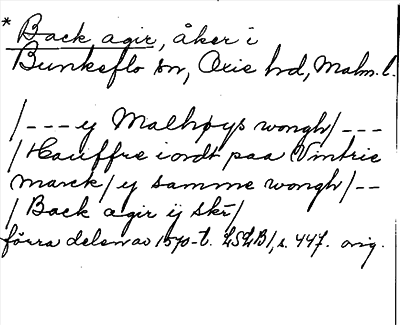 * Back agir, åker i
Bunkeflo sn, Oxie hd, Malm. l.
/--- y Malhøys wongh/---
/Hauffre iordt paa Vintrie
marck/ y samme wongh/--
/Back agir ij skr/
förra delen av 1570-t. LSLB1, s. 447. orig.